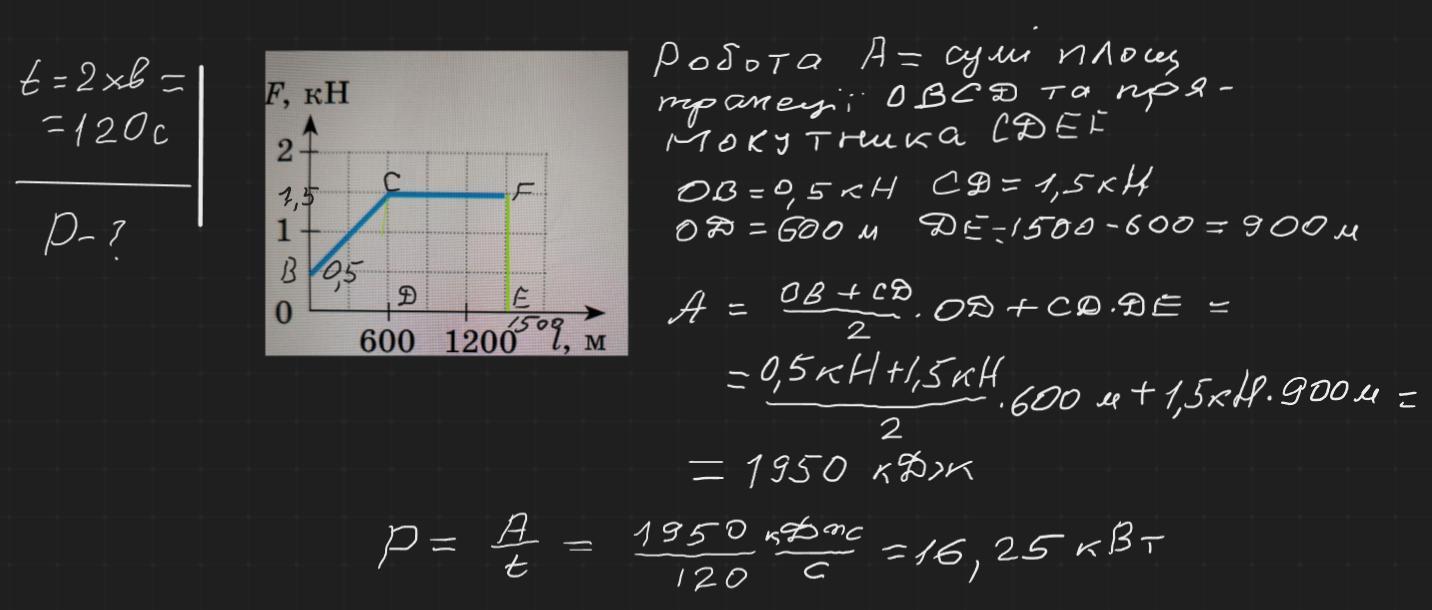 t = 2 хв =
= 120 с
P - ?
F, кН
2
1,5
1
0
B
0,5
C
F
D
E
600
1200
1500
l, м
Робота A = сумі площ
трапеції OBCD та пря-
мокутника CDEF
OB = 0,5 кН CD = 1,5 кН
OD = 600 м DE = 1500 - 600 = 900 м
A = (OB + CD)/2 · OD + CD · DE =
= (0,5 кН + 1,5 кН)/2 · 600 м + 1,5 кН · 900 м =
= 1950 кДж
P = A/t = 1950/120 кДж/с = 16,25 кВт